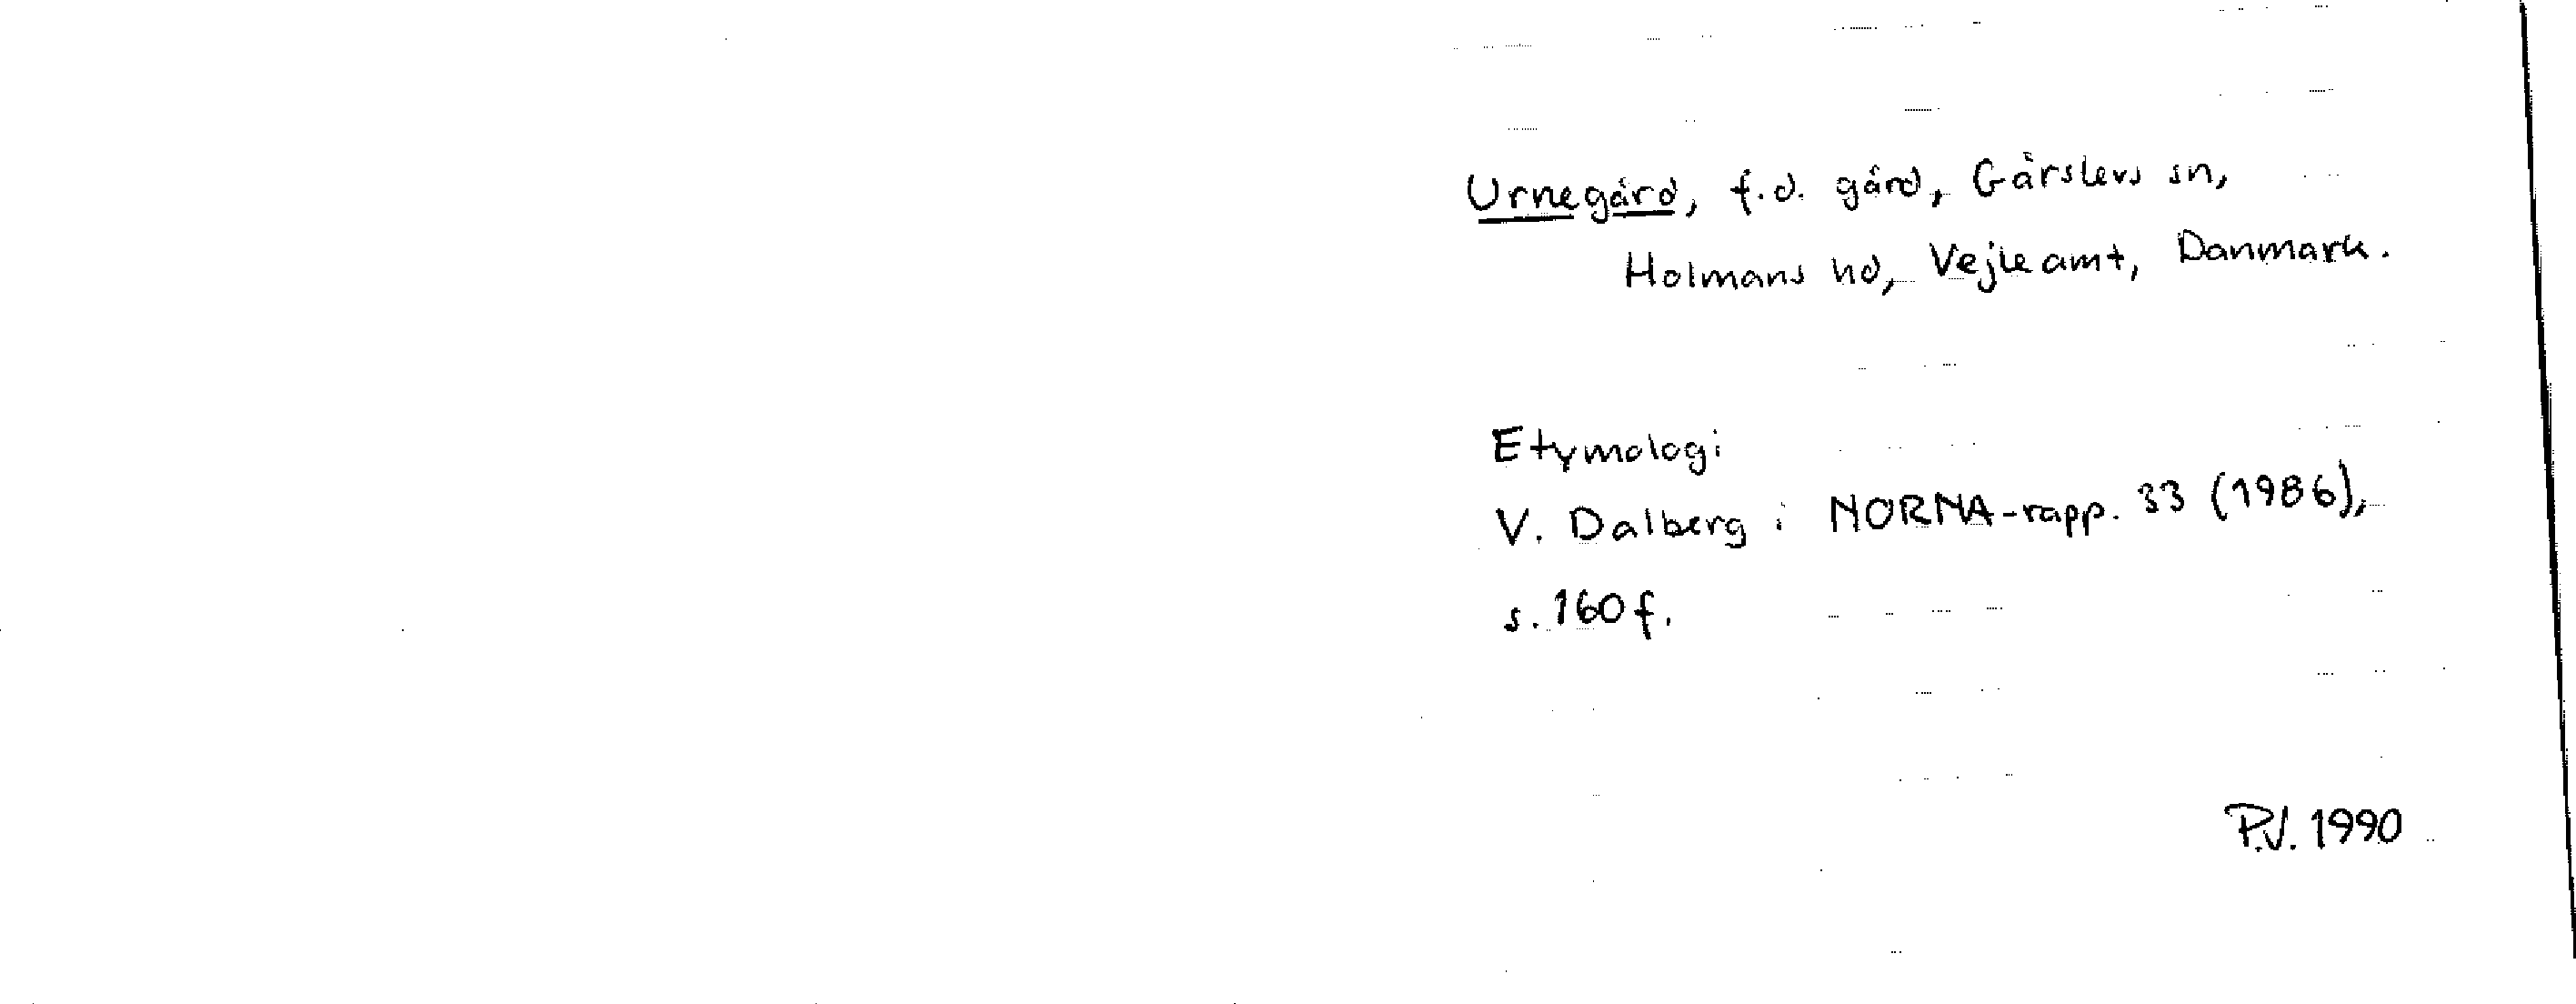 Urnegård, f.d. gård, Gårslevs sn,
Holmans hd, Vejle amt, Danmark.
Etymologi
V. Dalberg i NORNA-rapp. 33 (1986),
s. 160 f.
P.V. 1990